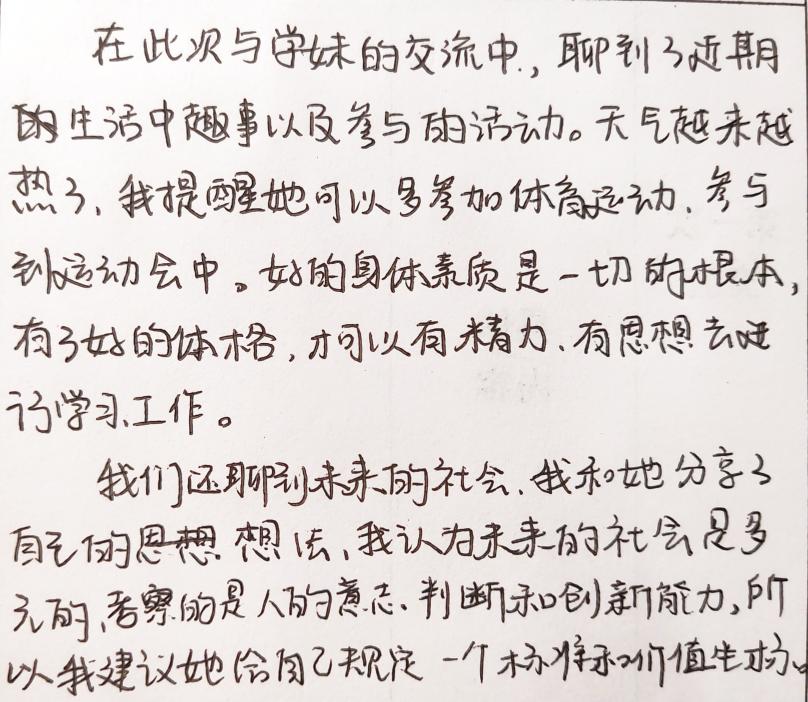 在此次与学妹的交流中，聊到了近期
的生活中趣事以及参与的活动。天气越来越
热了、我提醒她可以多参加体育运动、参与
到运动会中。好的身体素质是一切的根本，
有了好的体格，才可以有精力、有思想去进
行学习、工作。
我们还聊到未来的社会、我和她分享了
自己的思想 想法、我认为未来的社会是多
元的、考察的是人的意志、判断和创新能力，所
以我建议她给自己规定一个标准和价值坐标。